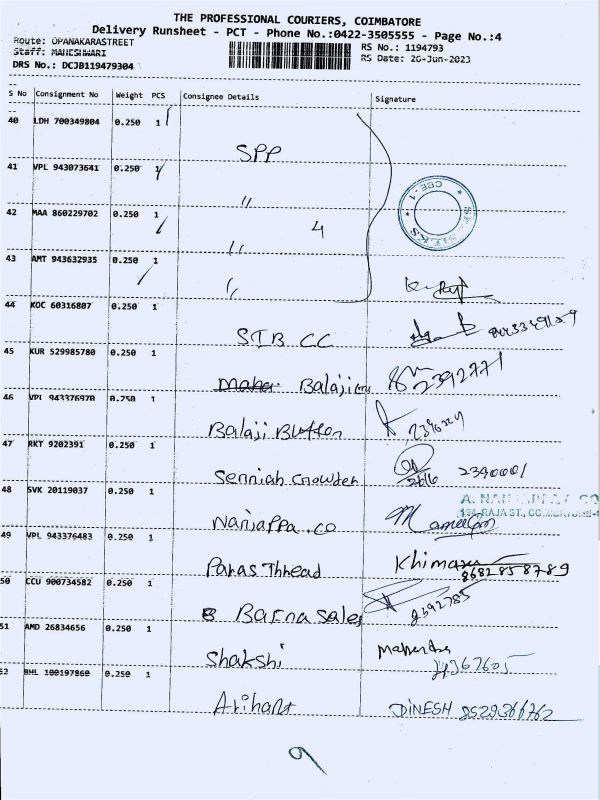 THE PROFESSIONAL COURIERS, COIMBATORE
Delivery Runsheet - PCT - Phone No.:0422-3505555 - Page No.:4
Route: OPANAKARASTREET RS No.: 1194793
Staff: MAHESHWARI RS Date: 26-Jun-2023
DRS No.: DCJB119479304
S No Consignment No Weight PCS Consignee Details Signature
40 LDH 700349804 0.250 1
SPP
41 VPL 943073641 0.250 1
"
42 MAA 860229702 0.250 1
4
"
43 AMT 943632935 0.250 1
"
44 KOC 60316807 0.250 1
SIB CC
45 KUR 529985780 0.250 1
Balaji 2392771
46 VPL 943376970 0.250 1
Balaji Button
47 RKT 9202391 0.250 1
Senniah Crowder 26/6 2390001
48 SVK 20119037 0.250 1
Nanjappa co
49 VPL 943376483 0.250 1
Paras Thread 8682858789
50 CCU 900734582 0.250 1
Barna Sales 2392785
51 AMD 26834656 0.250 1
Shakshi Mahendra
52 BHL 100197860 0.250 1
Arihant DINESH 8529366762
9